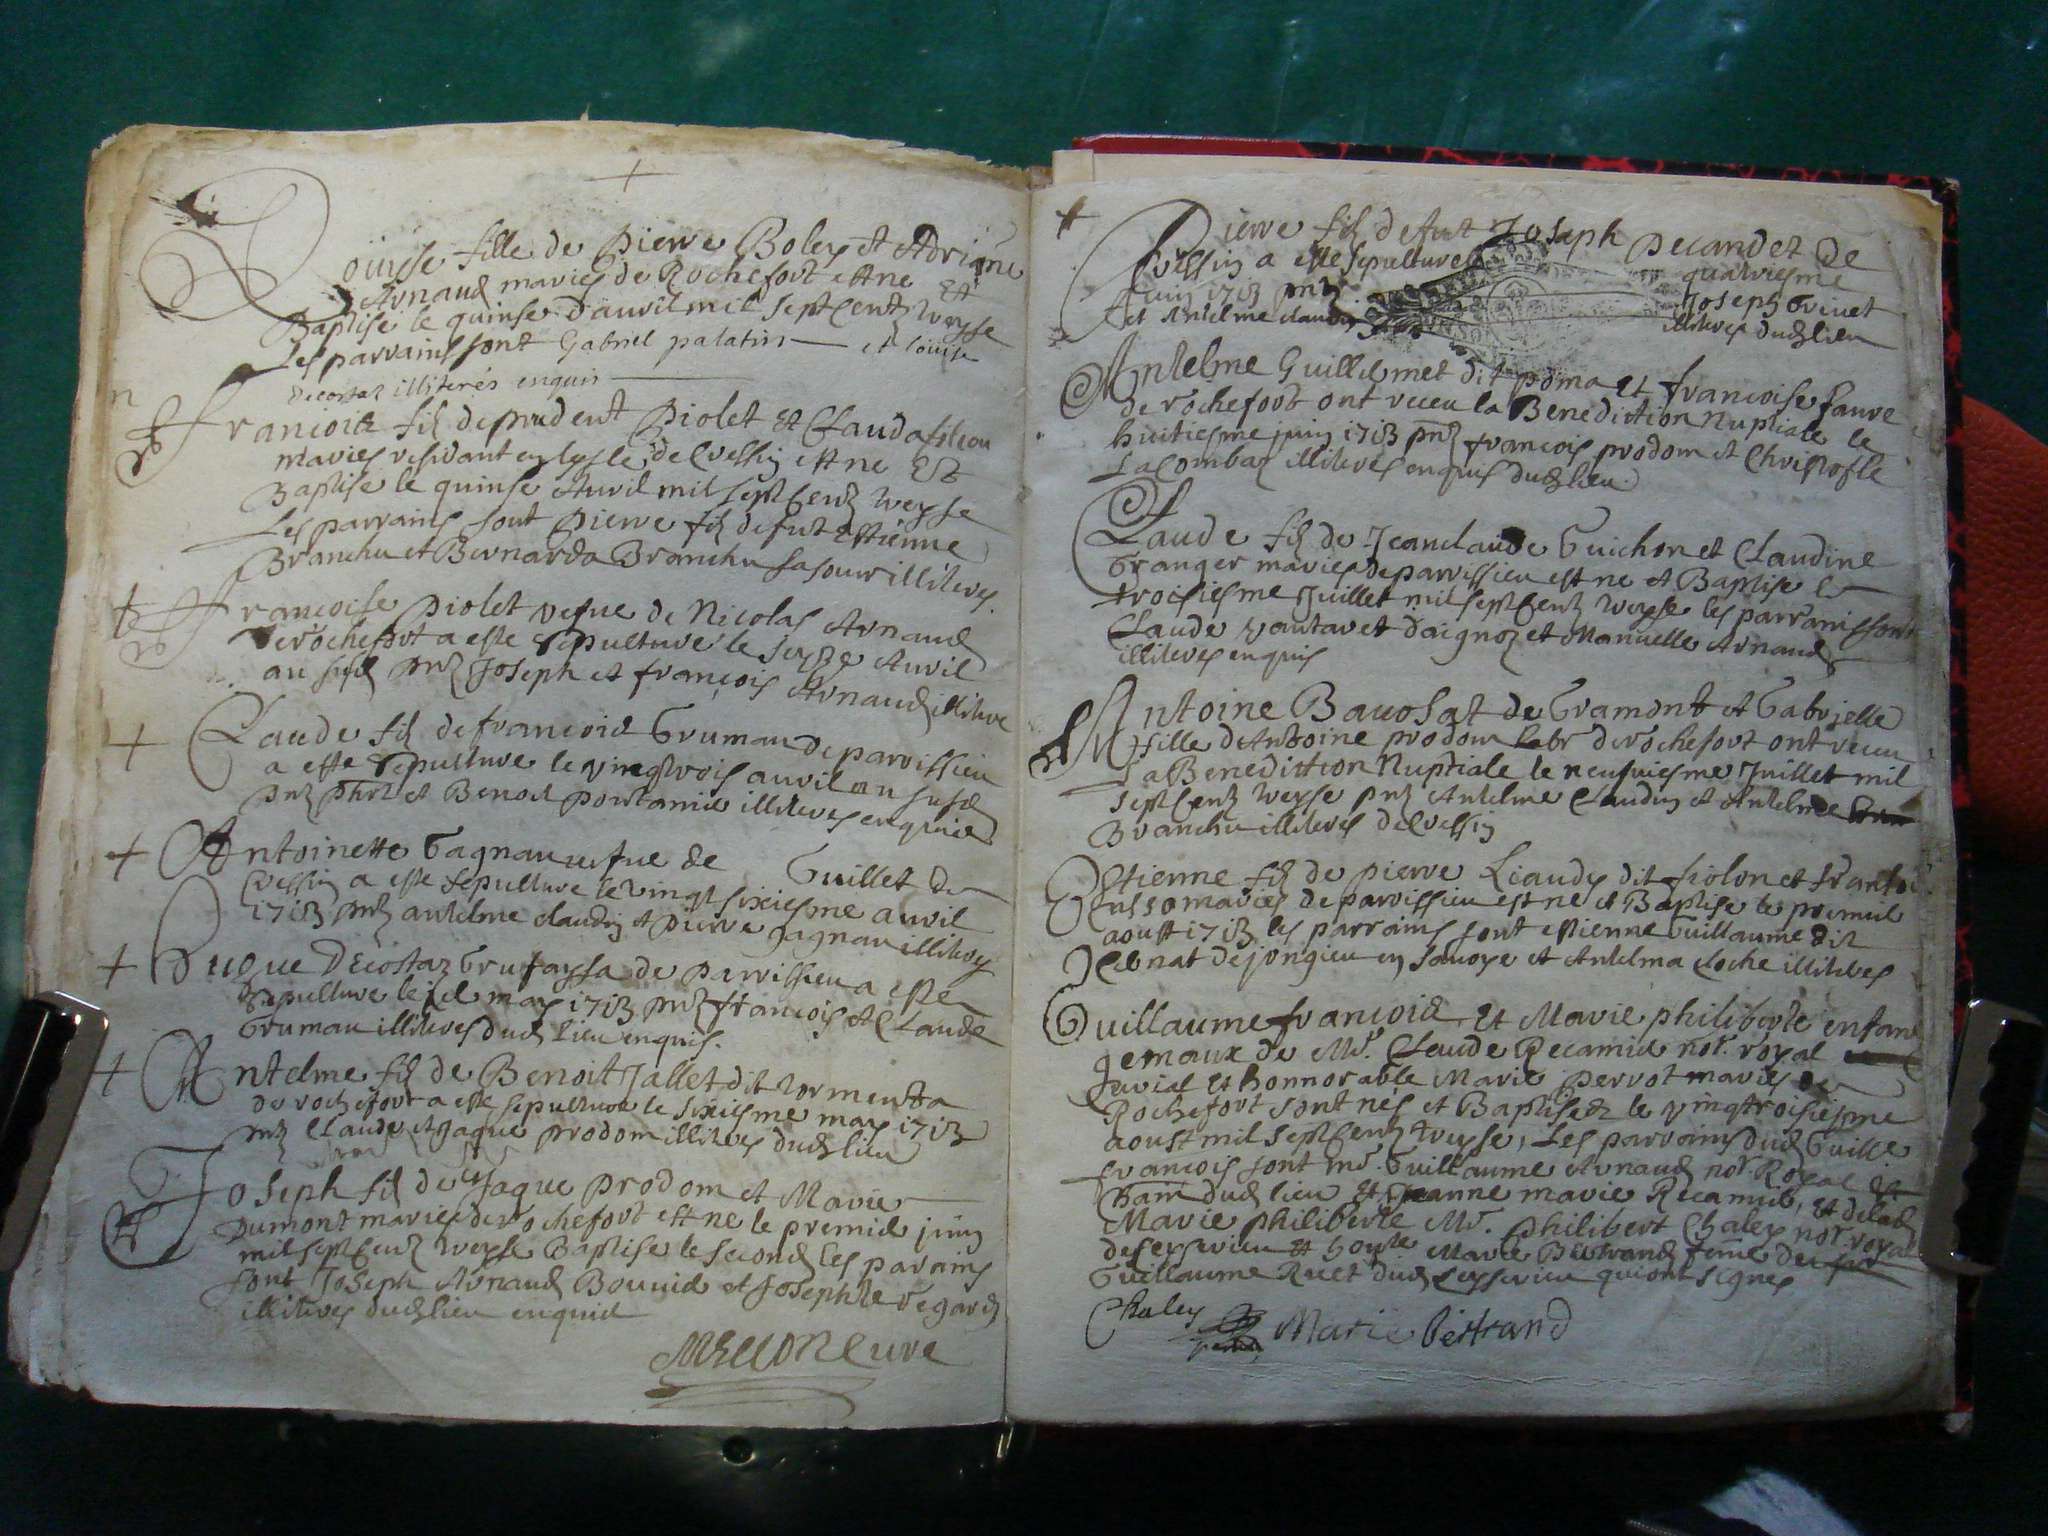 Louise fille de Pierre Boley et Adriane
Arnaud maries de Rochefort est ne et
Baptise le quinse d'auvril mil sept Centz treyse
Les parrains sont Gabriel palatin et louise
Decostaz illiterés enquis
francois fils de prudent Piolet et Clauda
maries residant en lysle de Cressin est ne Et
Baptise le quinse Auvril mil sept Centz treyse
Les parrains sont Pierre filz de fut Estienne
Branchu et Bernarda Branchu sa sœur illiteres
francoise Piolet vefue de Nicolas Arnaud
de rochefort a este sepulture le seyze Auvril
au susd pntz Joseph et françois Arnaud illitere
Claude fils de francois Gruman de parvissieu
a este sepulture le vingt trois auvril an susd
pntz et Benoit illiteres enquis
Antoinette Gagnau vefue de Guillet de
Cressin a este sepulture le vingt sixiesme auvril
1713 pntz antelme claudin et Pierre gagnau illiteres
Decostaz de Parvissieu a este
sepulture le may 1713 pntz francois et Claude
Gruman illiteres dud lieu enquis.
Antelme fils de Benoit Jallet dit tormenta
de rochefort a este sepulture le sixiesme may 1713
pntz Claude et Jaque prodom illiteres dud lieu
Joseph fils de Jaque prodom et Marie
Dumont maries de rochefort est ne le premier juin
mil sept Centz treyse Baptise le second les parains
sont Joseph Arnaud Bouvid et Josephte Degard
illiteres dud lieu enquis
Pierre filz de fut Joseph Decandet de
Cressin a este sepulture quatriesme
Juin 1713 pntz Joseph Grinet
et Antelme claudin illiteres dud lieu
Antelme Guillermet dit poma et francoise favre
de rochefort ont receu la Benediction Nuptiale le
huitiesme juin 1713 pntz francois prodom et Christofle
Lacombaz illiteres enquis dud lieu
Claude filz de Jeanclaude Guichon et Claudine
Granger maries de parvissieu est ne et Baptise le
troisiesme Juillet mil sept Centz treyse les parrains sont
Claude vautaret d'aignoz et Manuelle Arnaud
illiteres enquis
Antoine Bavosat de Gramont et Gabrielle
fille d'Antoine prodom labr de rochefort ont receu
la Benediction Nuptiale le neufuiesme Juillet mil
sept Centz treyse pntz Antelme Claudin et Antelme
Branchu illiteres de Cressin
Estienne filz de pierre Liaudy dit fiolon et
maries de parvissieu est ne et Baptise le premier
aoust 1713 les parrains sont estienne Guillaume dit
de jongieu en Savoye et Antelma cloche illiteres
Guillaume francois et Marie philiberte enfans
gemaux de Mr. Claude Recamier not. royal
et honnorable Marie pervot maries de
Rochefort sont nés et Baptises le vingt troisiesme
aoust mil sept Centz treyse, Les parrains dud Guille
francois sont mr. Guillaume Arnaud not. Royal et
dud lieu et Jeanne marie Recamier, et de lad
Marie philiberte Mr. philibert Chaley not. royal
de seyserieu et hoñle Marie Bertrand feme de
Guillaume Ruet dud seysserieu qui ont signes
Chaley Marie Bertrand